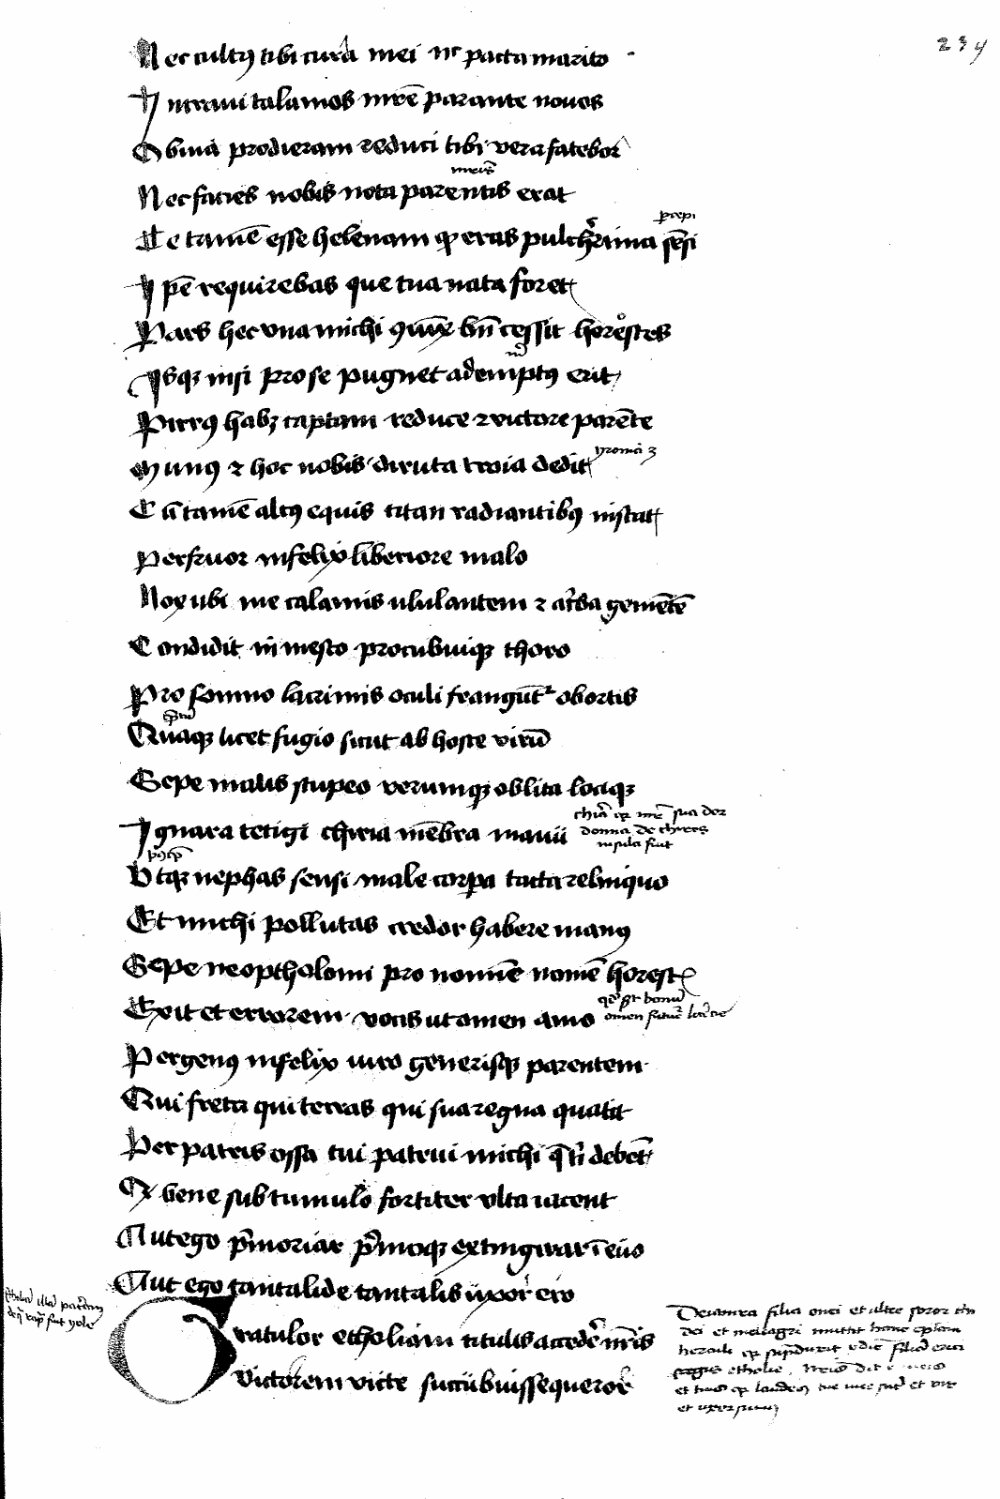 234
Nec cultus tibi cura mei nec pacta marito
Intravi talamos matre parante novos
Obvia prodieram reduci tibi vera fatebor
meis
Nec facies nobis nota parentis erat
Te tamen esse helenam quod eras pulcherrima sensi
Ipse requirebas que tua nata foret
Pars hec una michi coniunx bene cessit horestes
Is quoque nisi pro se pugnet ademptus erit
Pirrus habet captam reduce et victore parente
Munus et hoc nobis diruta troia dedit
Cum tamen altus equis titan radiantibus instat
Perfruor infelix liberiore malo
Nox ubi me talamis ululantem et acerba gementem
Condidit in mesto procubuique thoro
Pro somno lacrimis oculi franguntur obortis
Quaque licet fugio sicut ab hoste virum
Sepe malis stupeo rerumque oblita locique
Ignara tetigi chiria membra manu
Utque nephas sensi male corpora tacta relinquo
Et michi pollutas credor habere manus
Sepe neoptholomi pro nomine nomen horestis
Exit et errorem vocis ut omen amo
Per genus infelix iuro generisque parentem
Qui freta qui terras qui sua regna quatit
Per patris ossa tui patrui michi que tibi debent
Quod bene sub tumulo fortiter ulta iacent
Aut ego premoriar primoque extinguar in evo
Aut ego tantalide tantalis uxor ero
Gratulor etholiam titulis accedere nostris
Victorem victe succubuisse queror
Deianira filia onei et altee soror
dei et meleagri mittit hanc epistolam
herculi